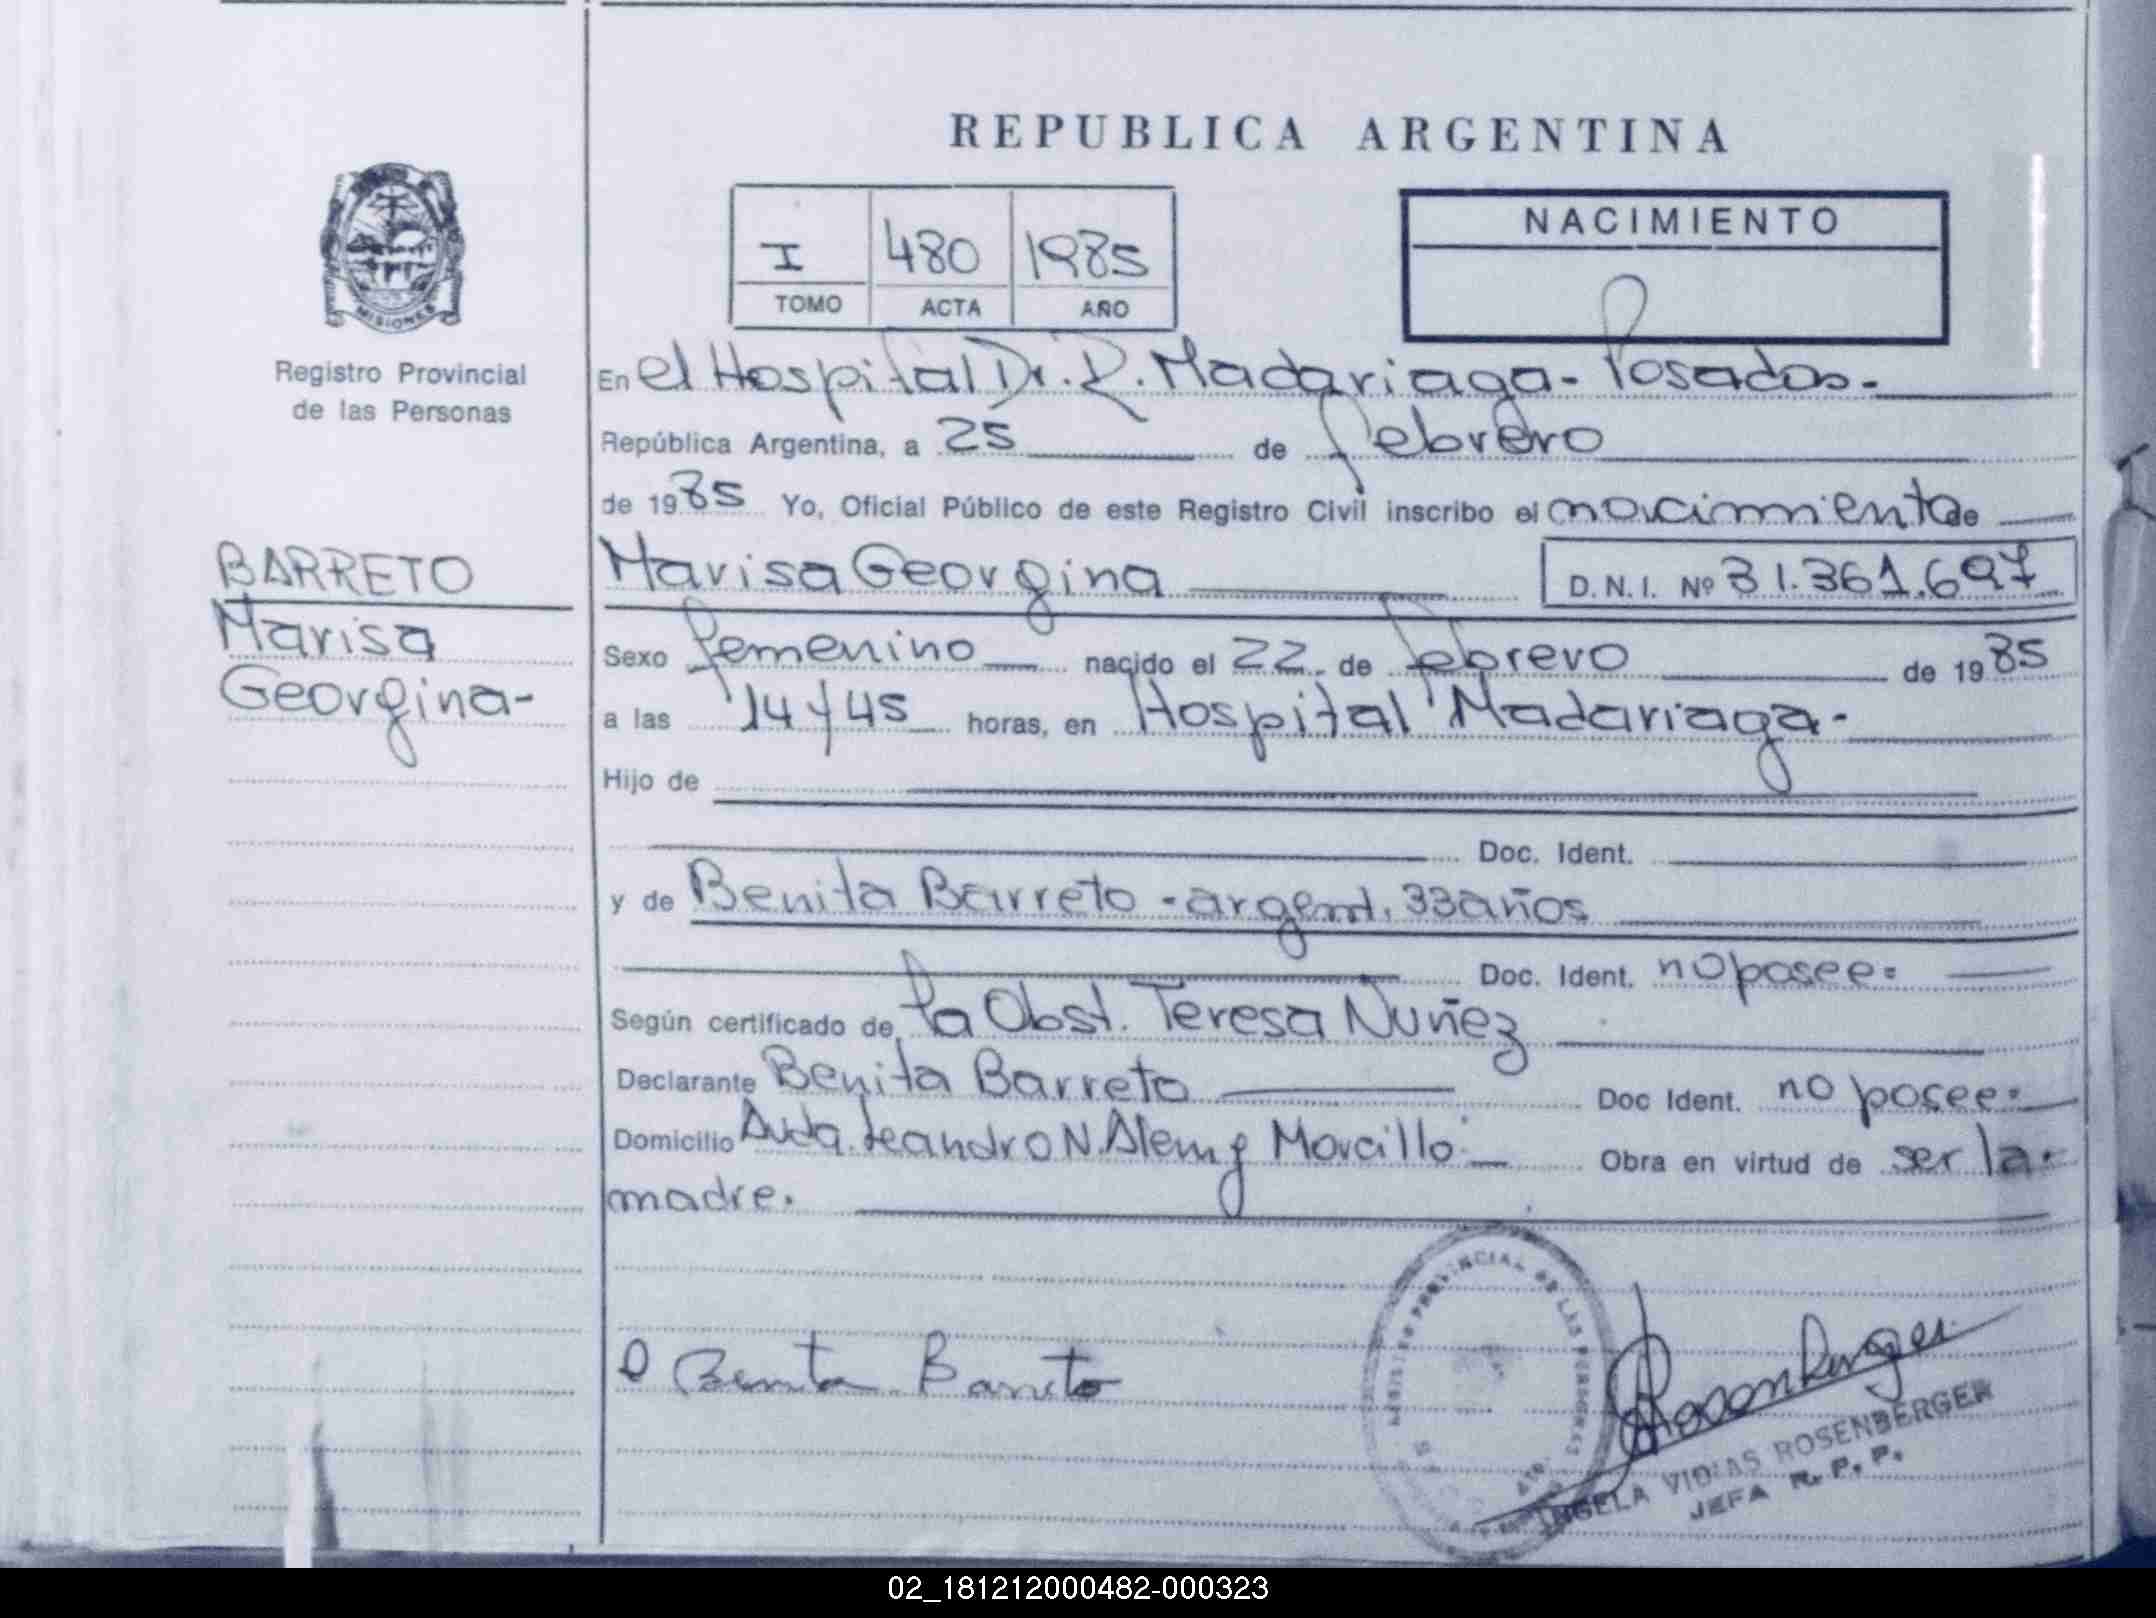 REPUBLICA ARGENTINA
I 480 1985
TOMO ACTA AÑO
NACIMIENTO
MISIONES
Registro Provincial
de las Personas
En el Hospital Dr. R. Madariaga - Posadas -
República Argentina, a 25 de febrero
de 1985 Yo, Oficial Público de este Registro Civil inscribo el nacimiento de
BARRETO
Marisa
Georgina-
Marisa Georgina D.N.I. Nº 31.361.697
Sexo femenino nacido el 22 de febrero de 1985
a las 14 y 45 horas, en Hospital Madariaga-
Hijo de
Doc. Ident.
y de Benita Barreto - argent. 33 años
Doc. Ident. no posee=
Según certificado de la Obst. Teresa Nuñez
Declarante Benita Barreto Doc Ident. no posee.
Domicilio Avda. Leandro N. Alem y Morcillo Obra en virtud de ser la
madre.
Benita Barreto
REGISTRO PROVINCIAL DE LAS PERSONAS
Rosenberger
ANGELA ROSENBERGER
JEFA R. P. P.
02_181212000482-000323